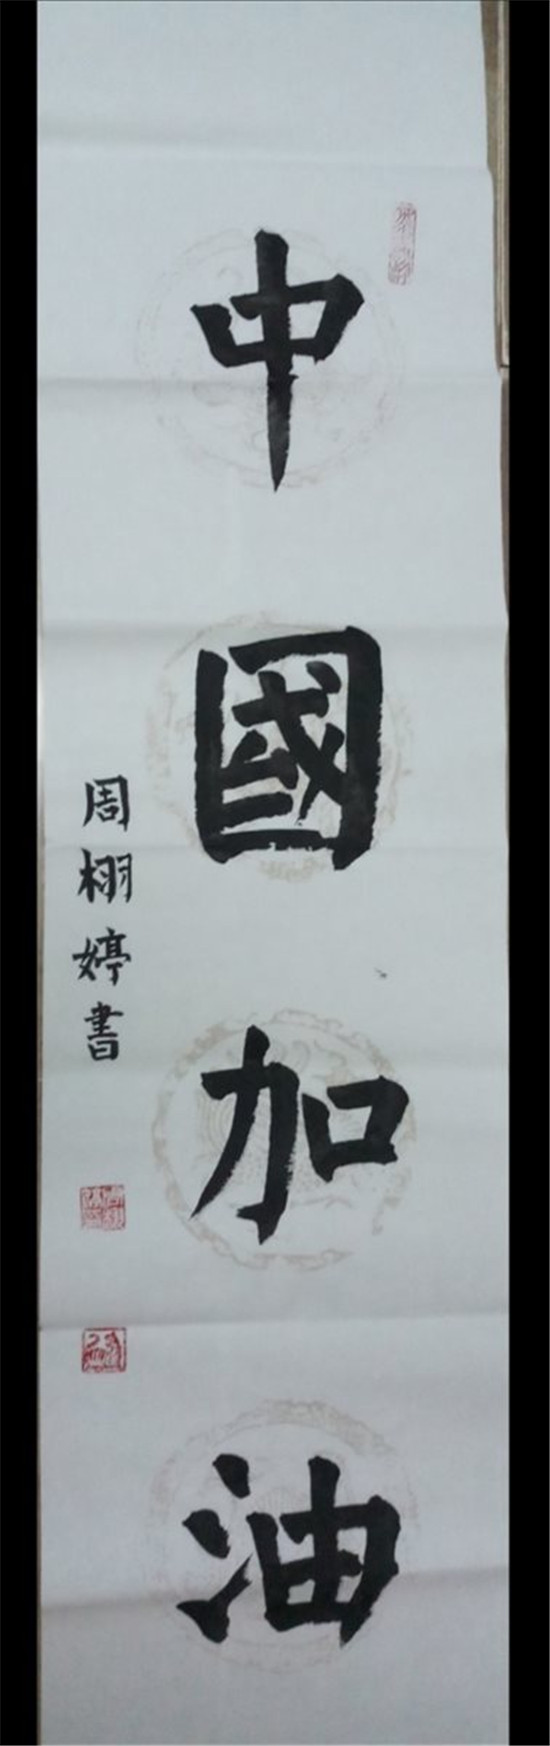 中國加油
周栩婷書